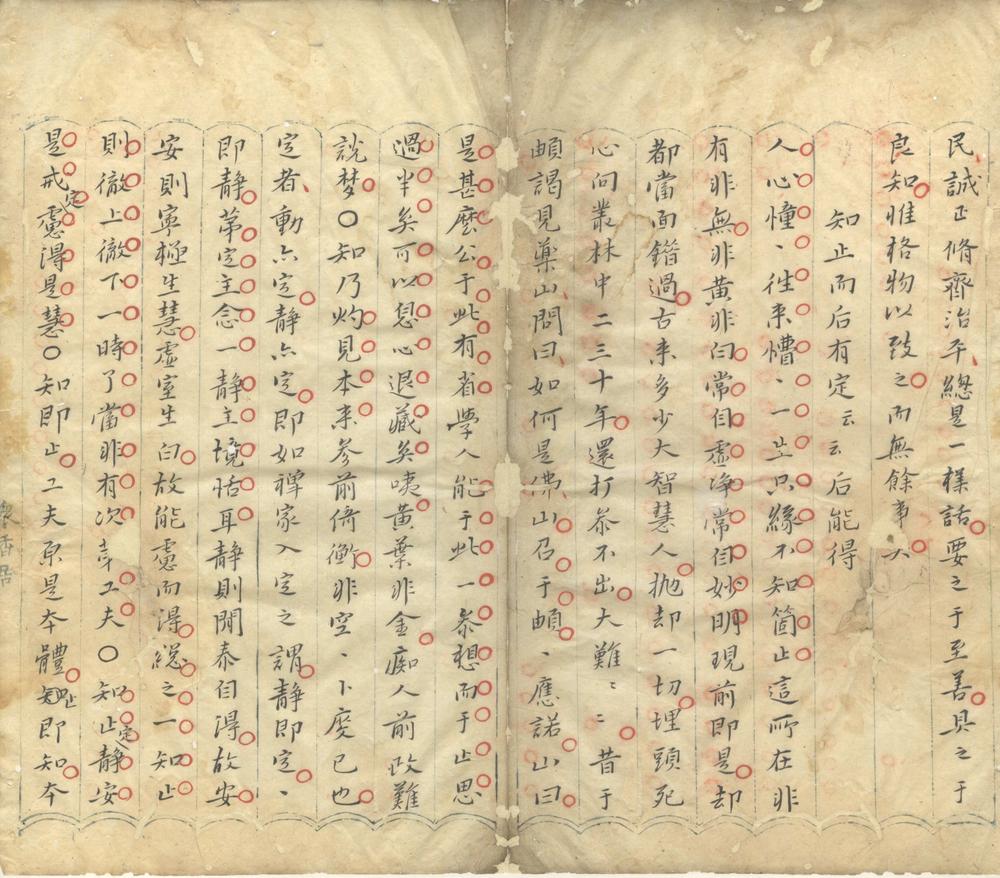 民誠正脩齊治平總是一樣話要之于至善具之于
良知惟格物以致之而無餘事
知止而后有定云云后能得
人心憧、往来慒、一生只緣不知箇止這所在非
有非無非黄非白常自虚浄常自妙明現前即是却
都當面錯過古来多少大智慧人抛却一切埋頭死
心向叢林中二三十年還打叅不出大難〻〻昔于
頔謁見藥山問曰如何是佛山召于頔、應諾山曰
是甚麽公于此有省學人能于此一叅想而于止思
過半矣可以息心退藏矣咦黄葉非金痴人前改難
說梦〇知乃灼見本来參前倚衡非空、卜度已也
定者動亦定静亦定即如禪家入定之謂静即定、
即静第定主念一静主境恬耳静則閒泰自得故安
安則寧極生慧虚室生白故能慮而得総之一知止
則徹上徹下一時了當非有次第工夫〇知止定静安
是戒定慮得是慧〇知即止工夫原是本體知止即知本